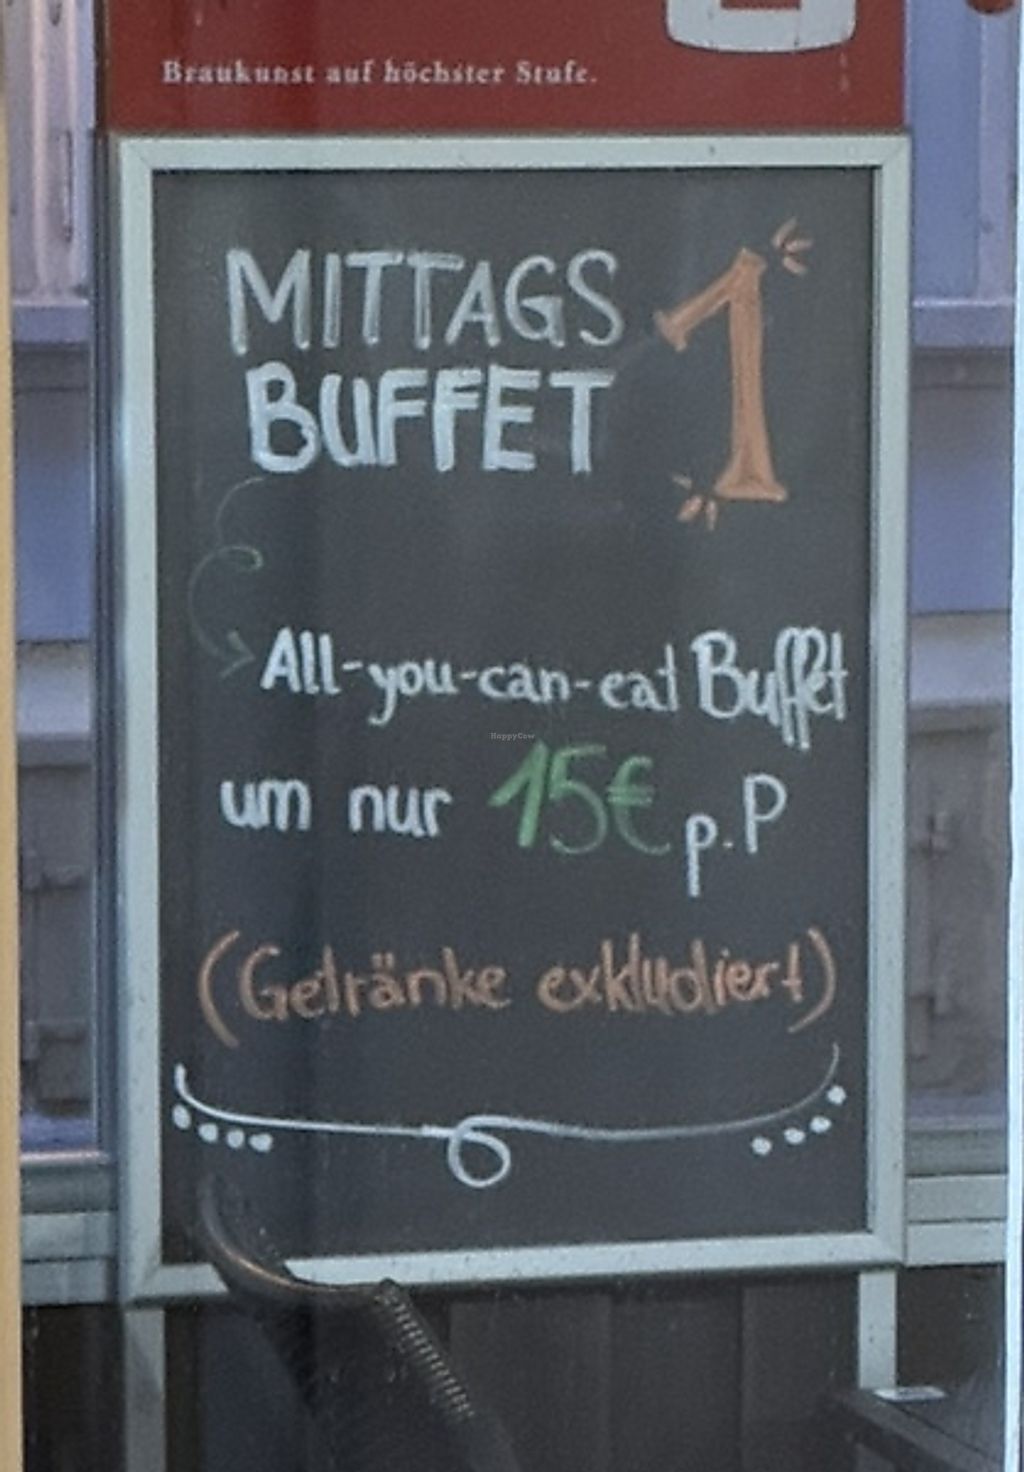 Braukunst auf höchster Stufe.
MITTAGS
BUFFET
1
All-you-can-eat Buffet
um nur 15€ p.P
(Getränke exkludiert)
HappyCow